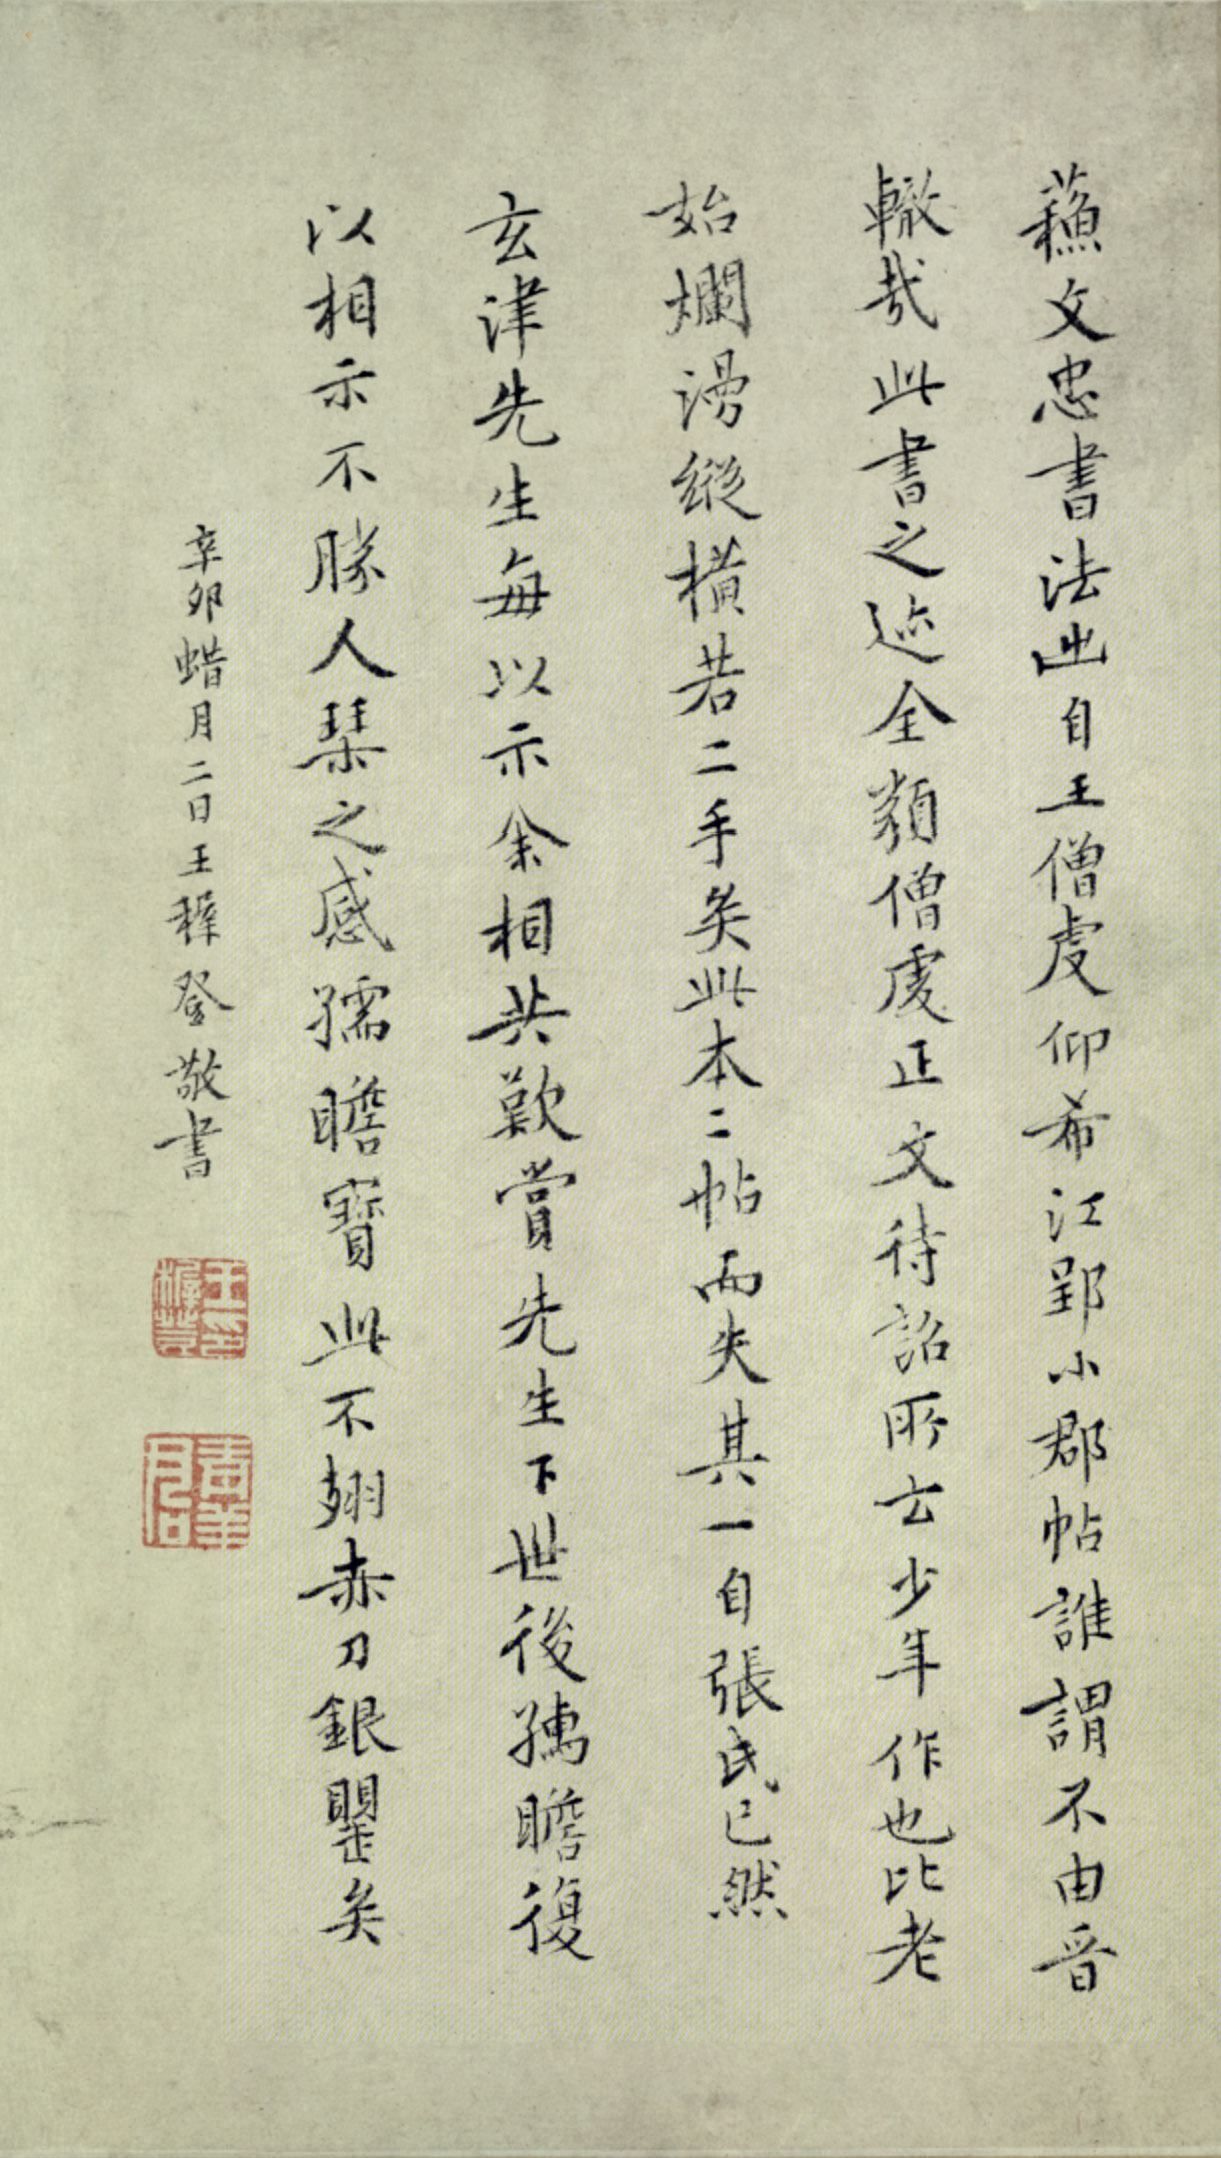 蘓文忠書法出自王僧虔仰希江郢小郡帖誰謂不由晉
轍哉此書之迹全類僧虔正文待詔所云少年作也比老
始爛漫縱橫若二手矣此本二帖而失其一自張氏已然
玄津先生每以示余相共歎賞先生下世後孺瞻復
以相示不勝人琹之感孺瞻寶此不翅赤刀銀瞿矣
辛卯蜡月二日王穉登敬書
王穉登印
青羊君